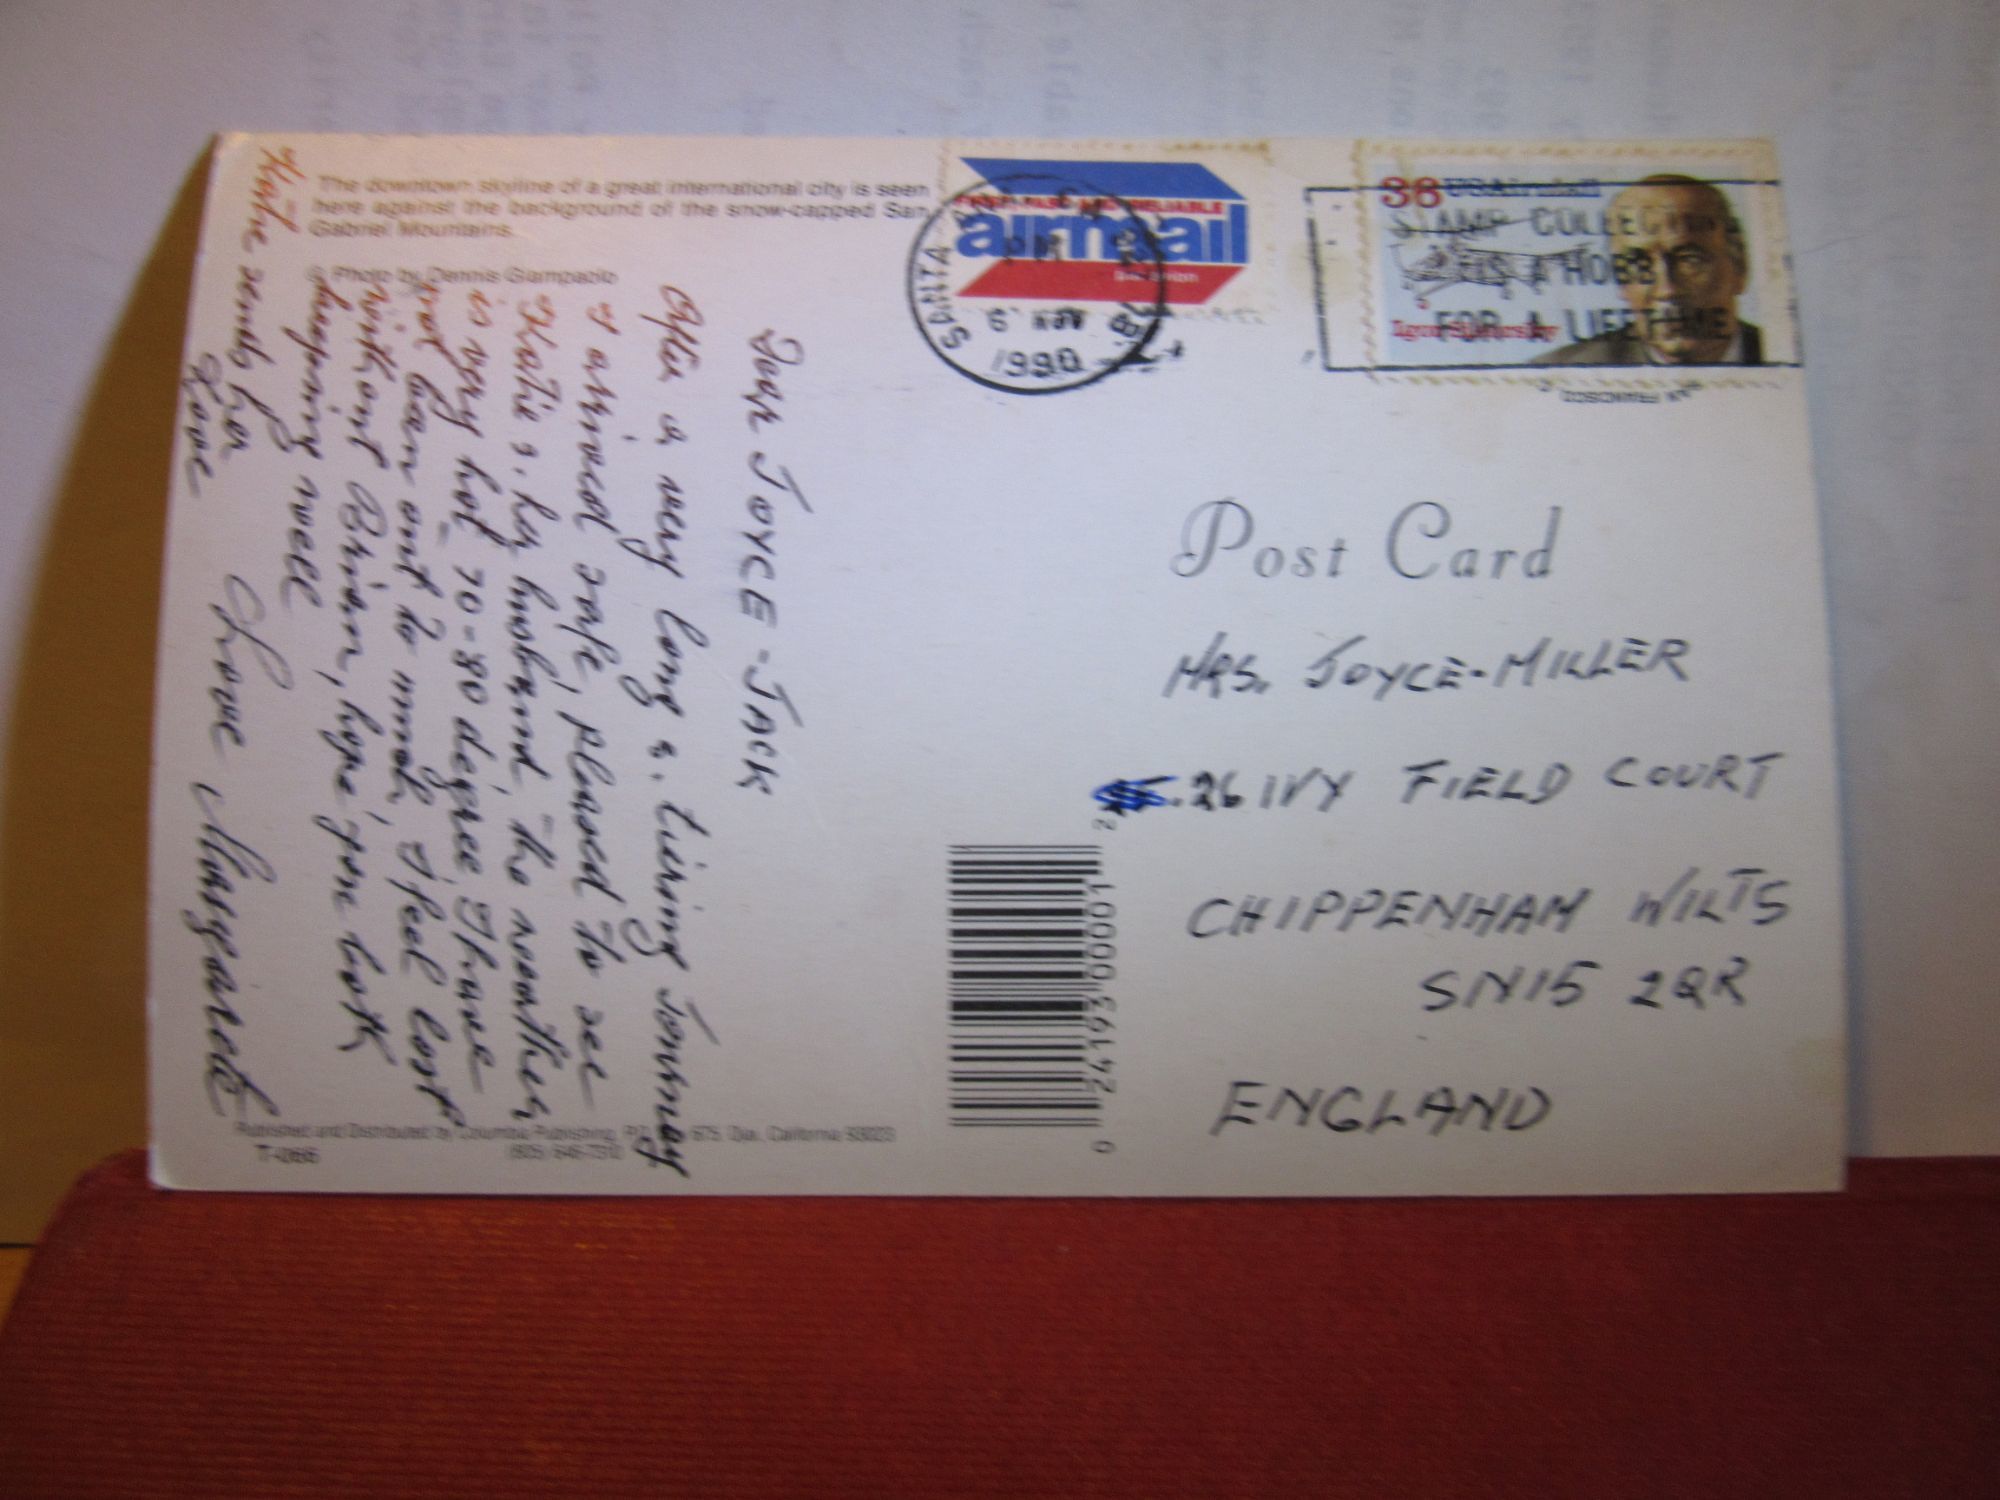 The downtown skyline of a great international city is seen
here against the background of the snow-capped San
Gabriel Mountains.
© Photo by Dennis Giampaolo
Dear JOYCE - JACK
After a very long &, tiring Journey
I arrived safe, pleased to see
Katie &, her husband, the weather
is very hot 70-80 degree, I have
not been out to much, I feel lost
without Brian, hope you both
keeping well
Love Margaret
Katie sends her
Love
Published and Distributed by Columbia Publishing, P.O. 675 Ojai, California 93023
(805) 646-7310
T-066
airmail
SANTA
PM
6 NOV
1990
36 USAirmail
Igor Sikorsky
STAMP COLLECTING
IS A HOBBY
FOR A LIFETIME
SAN FRANCISCO
Post Card
MRS. JOYCE-MILLER
26 IVY FIELD COURT
CHIPPENHAM WILTS
SN15 2QR
ENGLAND
0 24193 00001 2